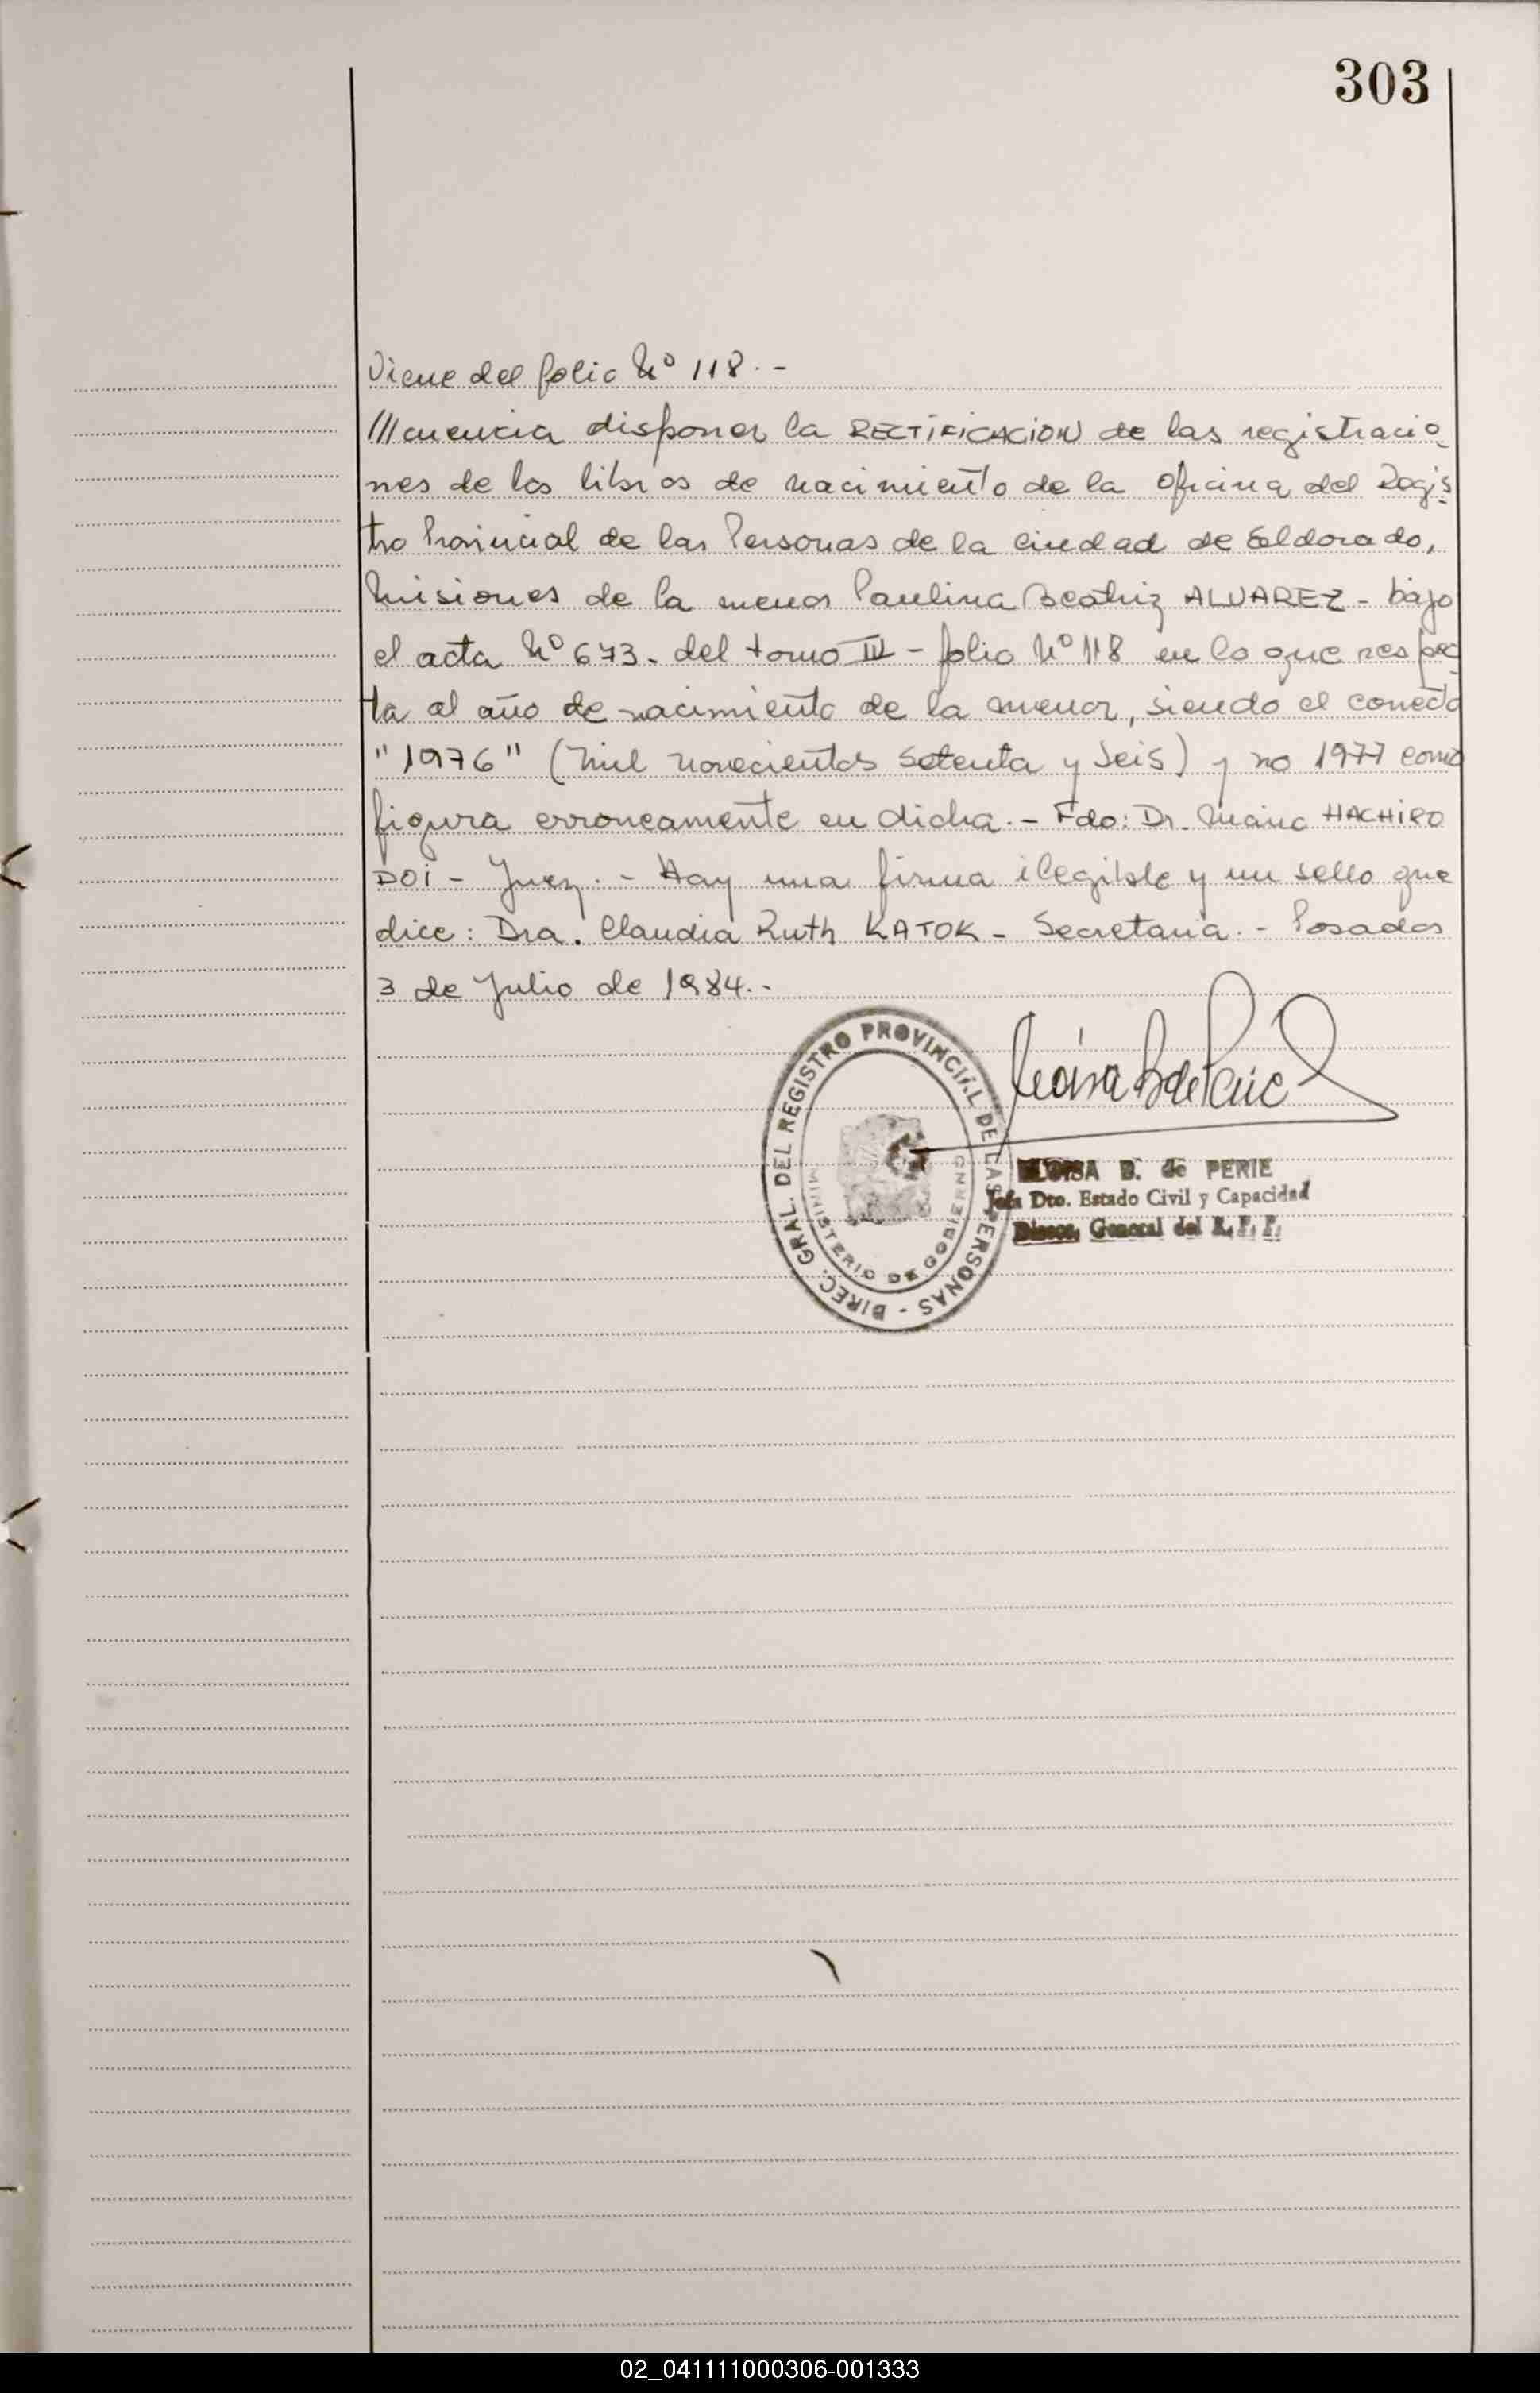 303
Viene del folio Nº 118.-
///cuencia disponer la RECTIFICACION de las registracio
nes de los libros de nacimiento de la oficina del Regis
tro Provincial de las Personas de la ciudad de Eldorado,
Misiones de la menor Paulina Beatriz ALVAREZ - bajo
el acta Nº 673. del tomo III - folio Nº 118 en lo que respec
ta al año de nacimiento de la menor, siendo el correcto
"1976" (Mil novecientos setenta y seis) y no 1977 como
figura erroneamente en dicha.- Fdo: Dr. Mario HACHIRO
DOI - Juez.- Hay una firma ilegible y un sello que
dice: Dra. Claudia Ruth KATOK - Secretaria.- Posadas
3 de Julio de 1984.-
DIREC. GRAL. DEL REGISTRO PROVINCIAL DE LAS PERSONAS -
MINISTERIO DE GOBIERNO
ELOISA B. de PERIE
Jefa Dto. Estado Civil y Capacidad
General del R. P. P.
02_041111000306-001333